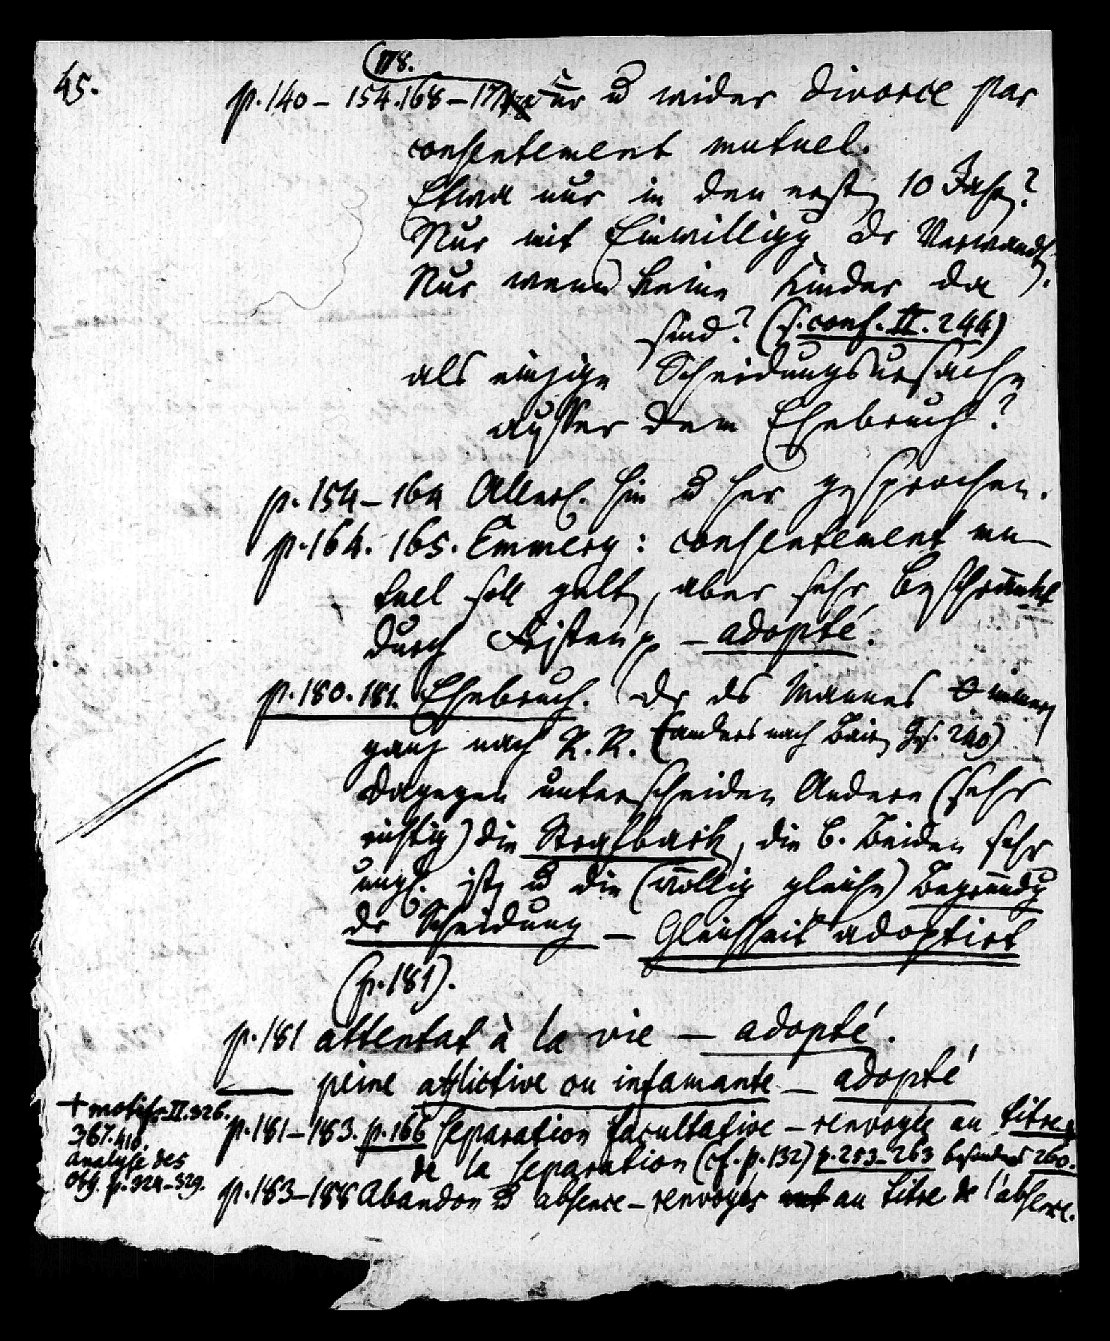 45.
178.
p. 140 – 154. 168 – 17 für u wider divorce par
consentement mutuel.
Etwa nur in den ersten 10 Jahren?
Nur mit Einwilligung der Verwandten?
Nur wenn keine Kinder da
sind? (s. conf. II. 244)
als einzige Scheidungsursache
außer dem Ehebruch?
p. 154 – 164 Allerl. hin u her gesprochen.
p. 164. 165. Emmery: consentement mu-
tuel soll gelten, aber sehr beschränkt
durch Fristen – adopté.
p. 180. 181. Ehebruch. der des Mannes + immer
ganz nach R. R. (anders nach 240)
Dagegen unterscheiden Andere (sehr
richtig) die Strafbark., die b. Beiden sehr
ungl. ist, u die (völlig gleiche) Begründg
der Scheidung – Gleichheit adoptirt
(p. 181).
p. 181 attentat à la vie – adopté.
— peine afflictive ou infamante – adopté
p. 181 – 183. p. 166 separation facultative – renvoyée au titre
de la separation (cf. p. 132) p. 253–263 besonders 260.
p. 183 – 188 Abandon u absence – renvoyés au titre de l'absence.
+ motifs II. 326.
367. 410.
Analyse des
Obs. p. 324–329.